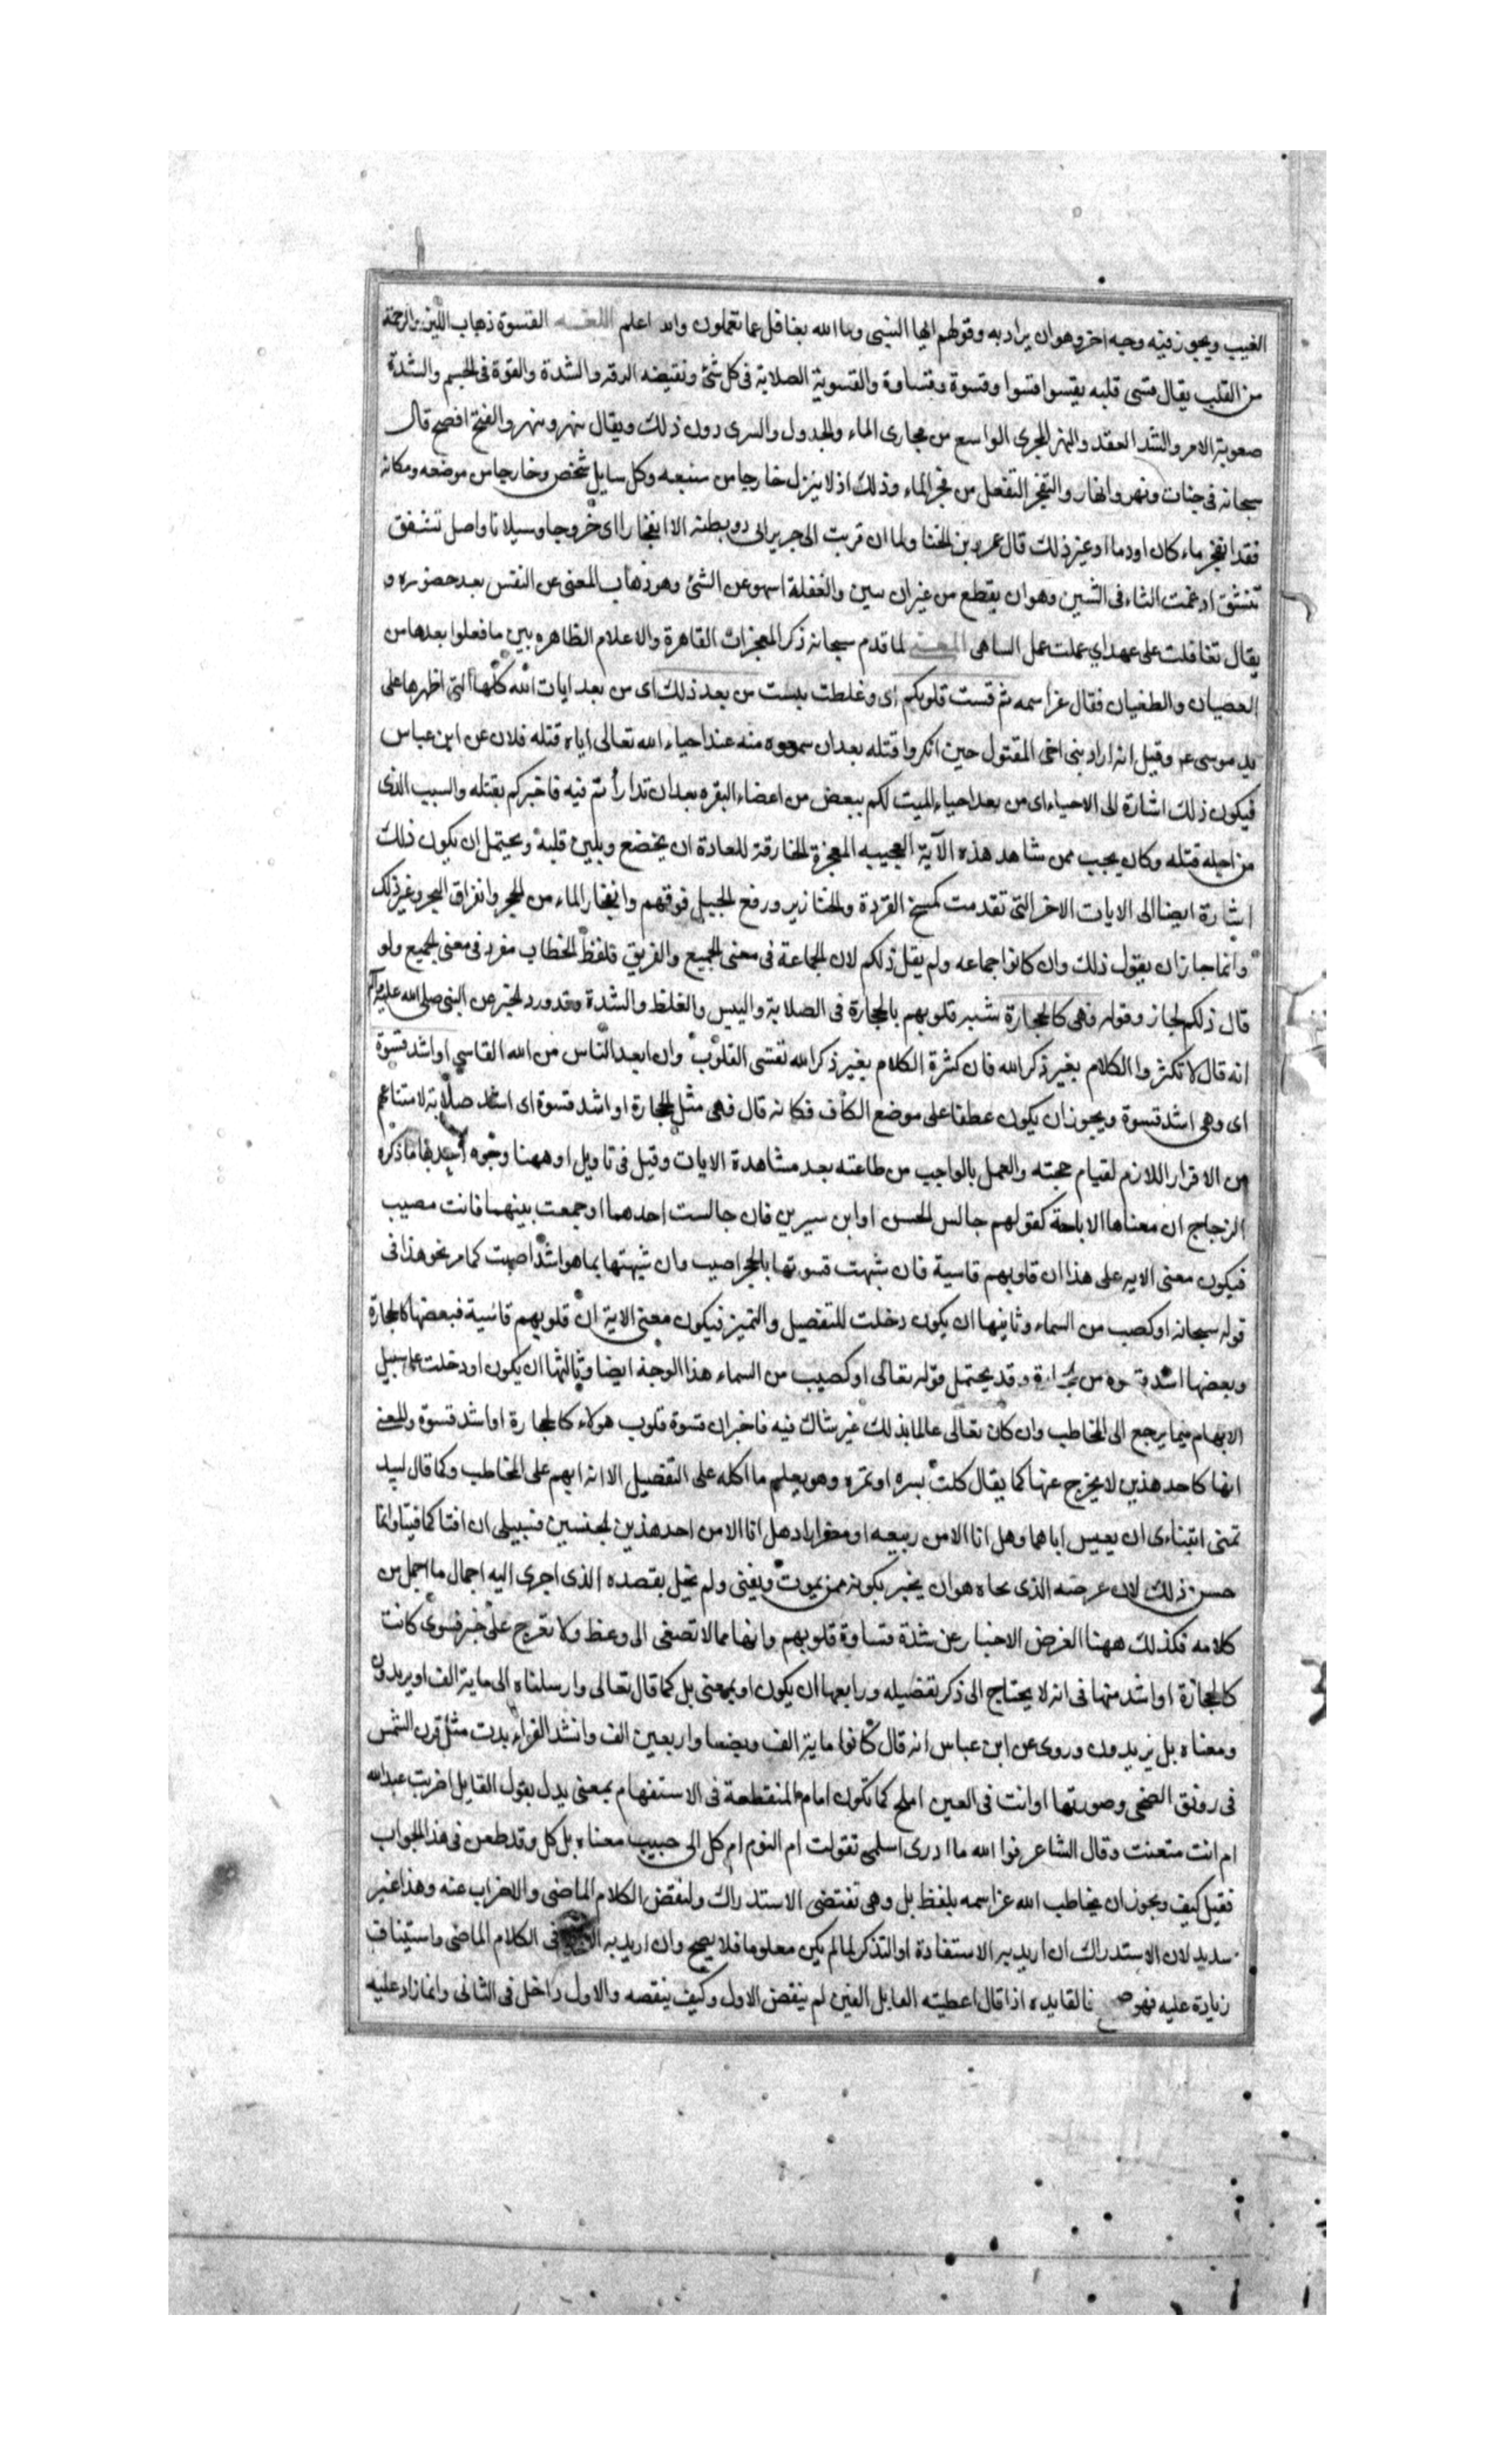 الغيب ويجوز فيه وجه اخر وهو ان يراد به وقولهم ايها النبي وما الله بغافل عما تعملون والله اعلم اللغة القسوة ذهاب اللين والرحمة
من القلب يقال قسى قلبه يقسوا قسوا وقسوة وقساوة والقسوية الصلابة فى كل شئ ونقيضه الرقة والشدة والقوة فى الجسم والشدة
صعوبة الامر والشد العقد والنهر المجرى الواسع من مجارى الماء والجدول والسرى دون ذلك ويقال نهر ونهر والفتح افصح قال
سبحانه فى جنات ونهر وانهار والتفجر التفعل من فجر الماء وذلك اذ لا ينزل خارجا من منبعه وكل سايل شخص وخارجا من موضعه ومكانه
فقد انفجر ماء كان اودما اوغير ذلك قال عمرو بن لحنا ولما ان قربت الى جرير ابى ذو بطنه الا انفجارا اى خروجا وسيلانا واصل تشقق
تتشقق ادغمت التاء فى الشين وهو ان يقطع من غيران سين والغفلة السهو عن الشئ وهو ذهاب المعنى عن النفس بعد حضوره و
يقال تغافلت على عهد اي عملت عمل الساهى المعنى لما قدم سبحانه ذكر المعجزات القاهرة والاعلام الظاهره بين ما فعلوا بعدها من
العصيان والطغيان فقال عز اسمه ثم قست قلوبكم اى وغلطت يبست من بعد ذلك اى من بعد ايات الله كلها التى اظهرها على
يد موسى ع وقيل انه اراد بنى اخى المقتول حين انكروا قتله بعد ان سمعوه منه عند احياء الله تعالى اياه قتله فلان عن ابن عباس
فيكون ذلك اشارة الى الاحياء اى من بعد احياء الميت لكم ببعض من اعضاء البقره بعد ان تدارأتم فيه فاخبركم بقتله والسبب الذى
من اجله قتله وكان يجب ممن شاهد هذه الآية العجيبه المعجزة الخارقة للعادة ان يخضع ويلين قلبه ويحتمل ان يكون ذلك
اشارة ايضا الى الايات الاخر التى تقدمت كمسخ القردة والخنازير ورفع الجبل فوقهم وانفجار الماء من الحجر وانفراق البحر وغير ذلك
وانما جاز ان يقول ذلك وان كانوا جماعه ولم يقل ذلكم لان الجماعة فى معنى الجميع والفريق فلفظ الخطاب مفرد فى معنى الجميع ولو
قال ذلكم لجاز وقوله فهى كالحجارة شبه قلوبهم بالحجارة فى الصلابة واليبس والغلظ والشدة وقد ورد الخبر عن النبى صلى الله عليه وآله
انه قال لا تكثروا الكلام بغير ذكر الله فان كثرة الكلام بغير ذكر الله تقسى القلوب وان ابعد الناس من الله القاسي او اشد قسوة
اى وهى اشد قسوة ويجوز ان يكون عطفا على موضع الكاف فكانه قال فهى مثل الحجارة او اشد قسوة اى اشد صلابة لامتناعهم
من الاقرار اللازم لقيام حجته والعمل بالواجب من طاعته بعد مشاهدة الايات وقيل فى تاويل او ههنا وجوه احدها ما ذكره
الزجاج ان معناها الاباحة كقولهم جالس الحسن او ابن سيرين فان جالست احدهما او جمعت بينهما فانت مصيب
فيكون معنى الايه على هذا ان قلوبهم قاسية فان شبهت قسوتها بالحجر اصبب وان شبهتها بما هو اشد اصبت كما مر نحو هذا فى
قوله سبحانه او كصب من السماء وثانيها ان يكون دخلت للتفصيل والتميز فيكون معنى الاية ان قلوبهم قاسية فبعضها كالحجارة
وبعضها اشد قسوه من الحجارة وقد يحتمل قوله تعالى او كصيب من السماء هذا الوجه ايضا وثالثها ان يكون او دخلت على سبيل
الابهام فيما يرجع الى المخاطب وان كان تعالى عالما بذلك غير شاك فيه فاخبر ان قسوة قلوب هولاء كالحجارة او اشد قسوة والمعنى
انها كاحد هذين لا يخرج عنها كما يقال كلت بسره او تمره وهو يعلم ما اكله على التفصيل الا انه ابهم على المخاطب وكما قال لبيد
تمنى ابنتاءى ان يعيس اباهما وهل انا الا من ربيعه او مضر اراد هل انا الا من احد هذين الجنسين فسبيلى ان افنا كما فنيا وانما
حسن ذلك لان غرضه الذى نحاه هو ان يخبر بكونه ممن يموت ويفنى ولم يخل بقصده الذى اجرى اليه اجمال ما اجمل من
كلامه فكذلك ههنا الغرض الاخبار عن شدة قساوة قلوبهم وانها مما لا تصغى الى وعظ ولا تعرج على خبر فسوى كانت
كالحجازة او اشد منها فى انه لا يحتاج الى ذكر تفضيله ورابعها ان يكون او بمعنى بل كما قال تعالى وارسلناه الى ماية الف او يزيدون
ومعناه بل يزيدون وروى عن ابن عباس انه قال كانوا ماية الف وبضعا واربعين الف وانشد الفراء بدت مثل قرن الشمس
فى رونق الضحى وصورتها او انت فى العين املح كما تكون ام المنقطعة فى الاستفهام بمعنى بل يقول القايل اضربت عبد الله
ام انت متعنت وقال الشاعر فوا الله ما ادرى اسلمى تقولت ام النوم ام كل الى حبيب معناه بل كل وقد طعن فى هذا الجواب
فقيل كيف ويجوز ان يخاطب الله عز اسمه بلفظ بل وهى تقتضى الاستدراك والنقض الكلام الماضى والاضراب عنه وهذا غير
سديد لان الاستدراك ان اريد به الاستفادة او التذكر لما لم يكن معلوما فلا يصح وان اريد به فى الكلام الماضى واستيناف
زيادة عليه فهو صح فالقايده اذا قال اعطيته الفا بل الفين لم ينقض الاول وكيف ينقصه والاول داخل فى الثانى وانما زاد عليه